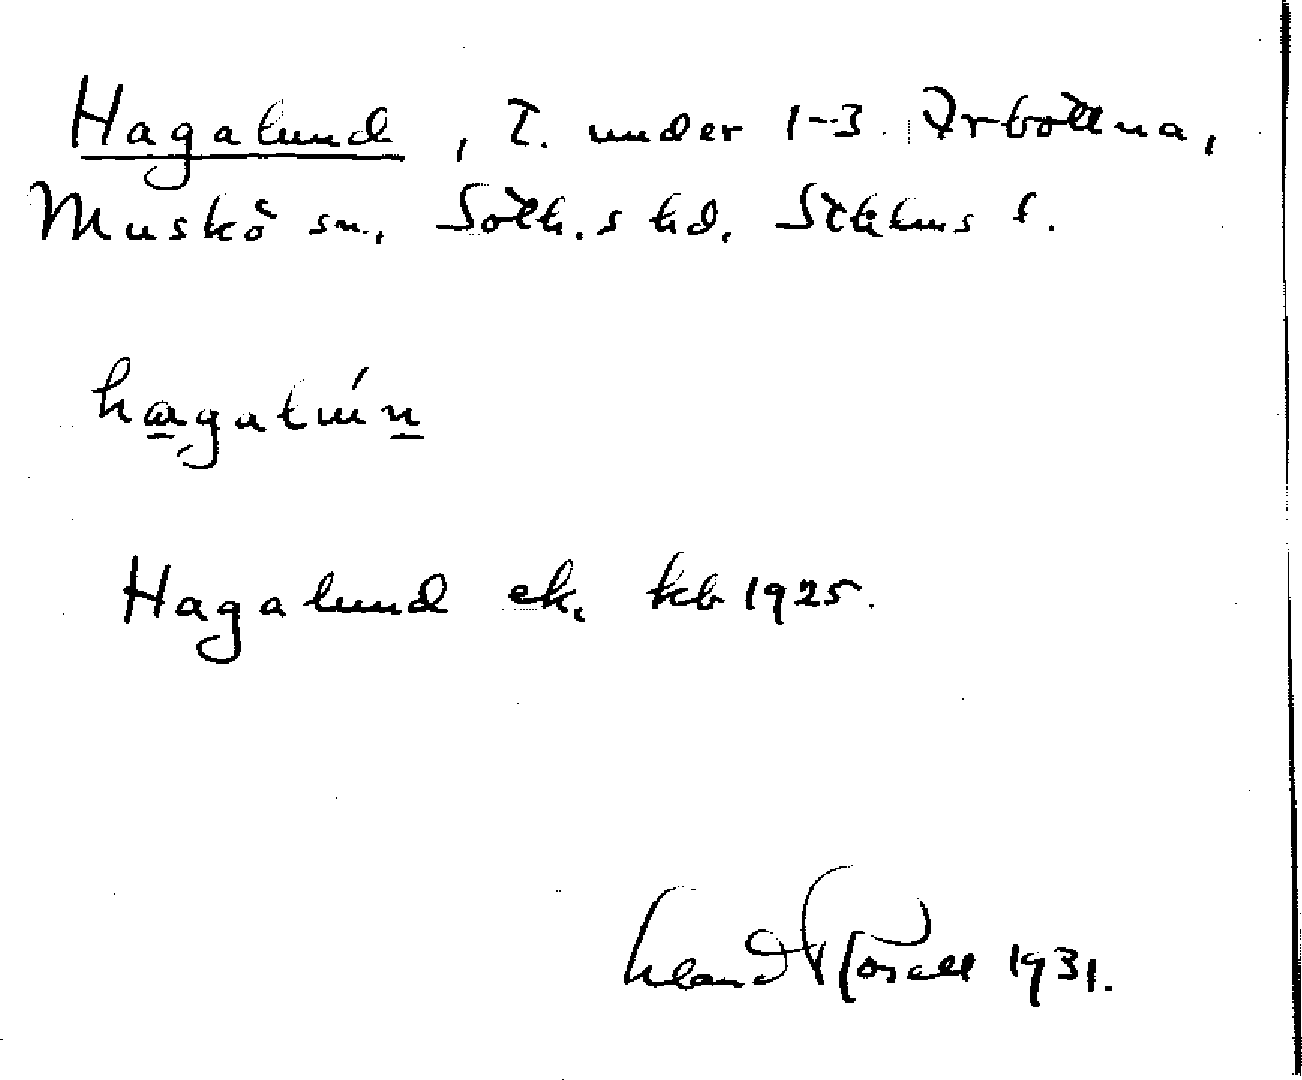 Hagalund, T. under 1-3 Arbottna,
Muskö sn, Soth.s hd. Sthlms l.
hagalún
Hagalund ek. kb 1925.
1931.